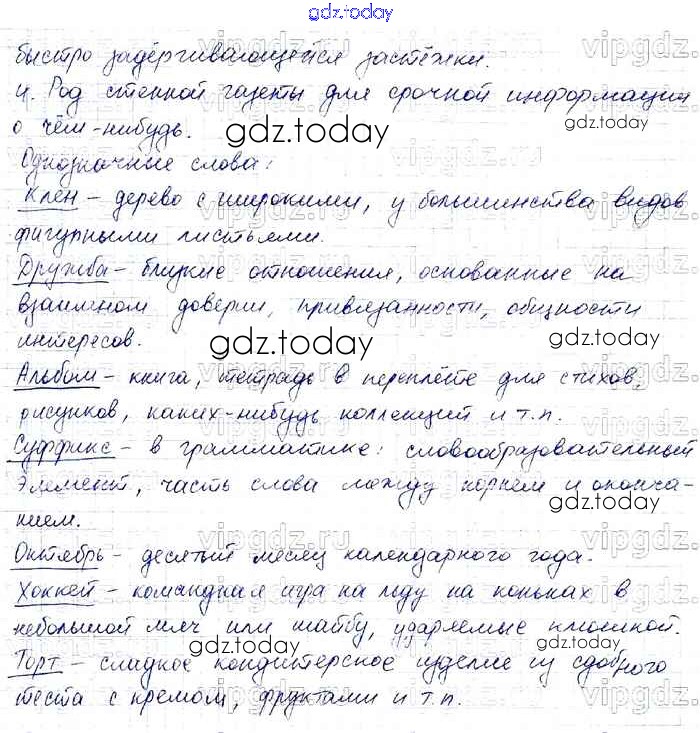 gdz.today
быстро задёргивающейся застёжки.
4. Род стенной газеты для срочной информации
о чём-нибудь.
Однозначные слова:
Клён – дерево с широкими, у большинства видов
фигурными листьями.
Дружба – близкие отношения, основанные на
взаимном доверии, привязанности, общности
интересов.
Альбом – книга, тетрадь в переплёте для стихов,
рисунков, каких-нибудь коллекций и т.п.
Суффикс – в грамматике: словообразовательный
элемент, часть слова между корнем и оконча-
нием.
Октябрь – десятый месяц календарного года.
Хоккей – командная игра на льду на коньках в
небольшой мяч или шайбу, ударяемые клюшкой.
Торт – сладкое кондитерское изделие из сдобного
теста с кремом, фруктами и т.п.